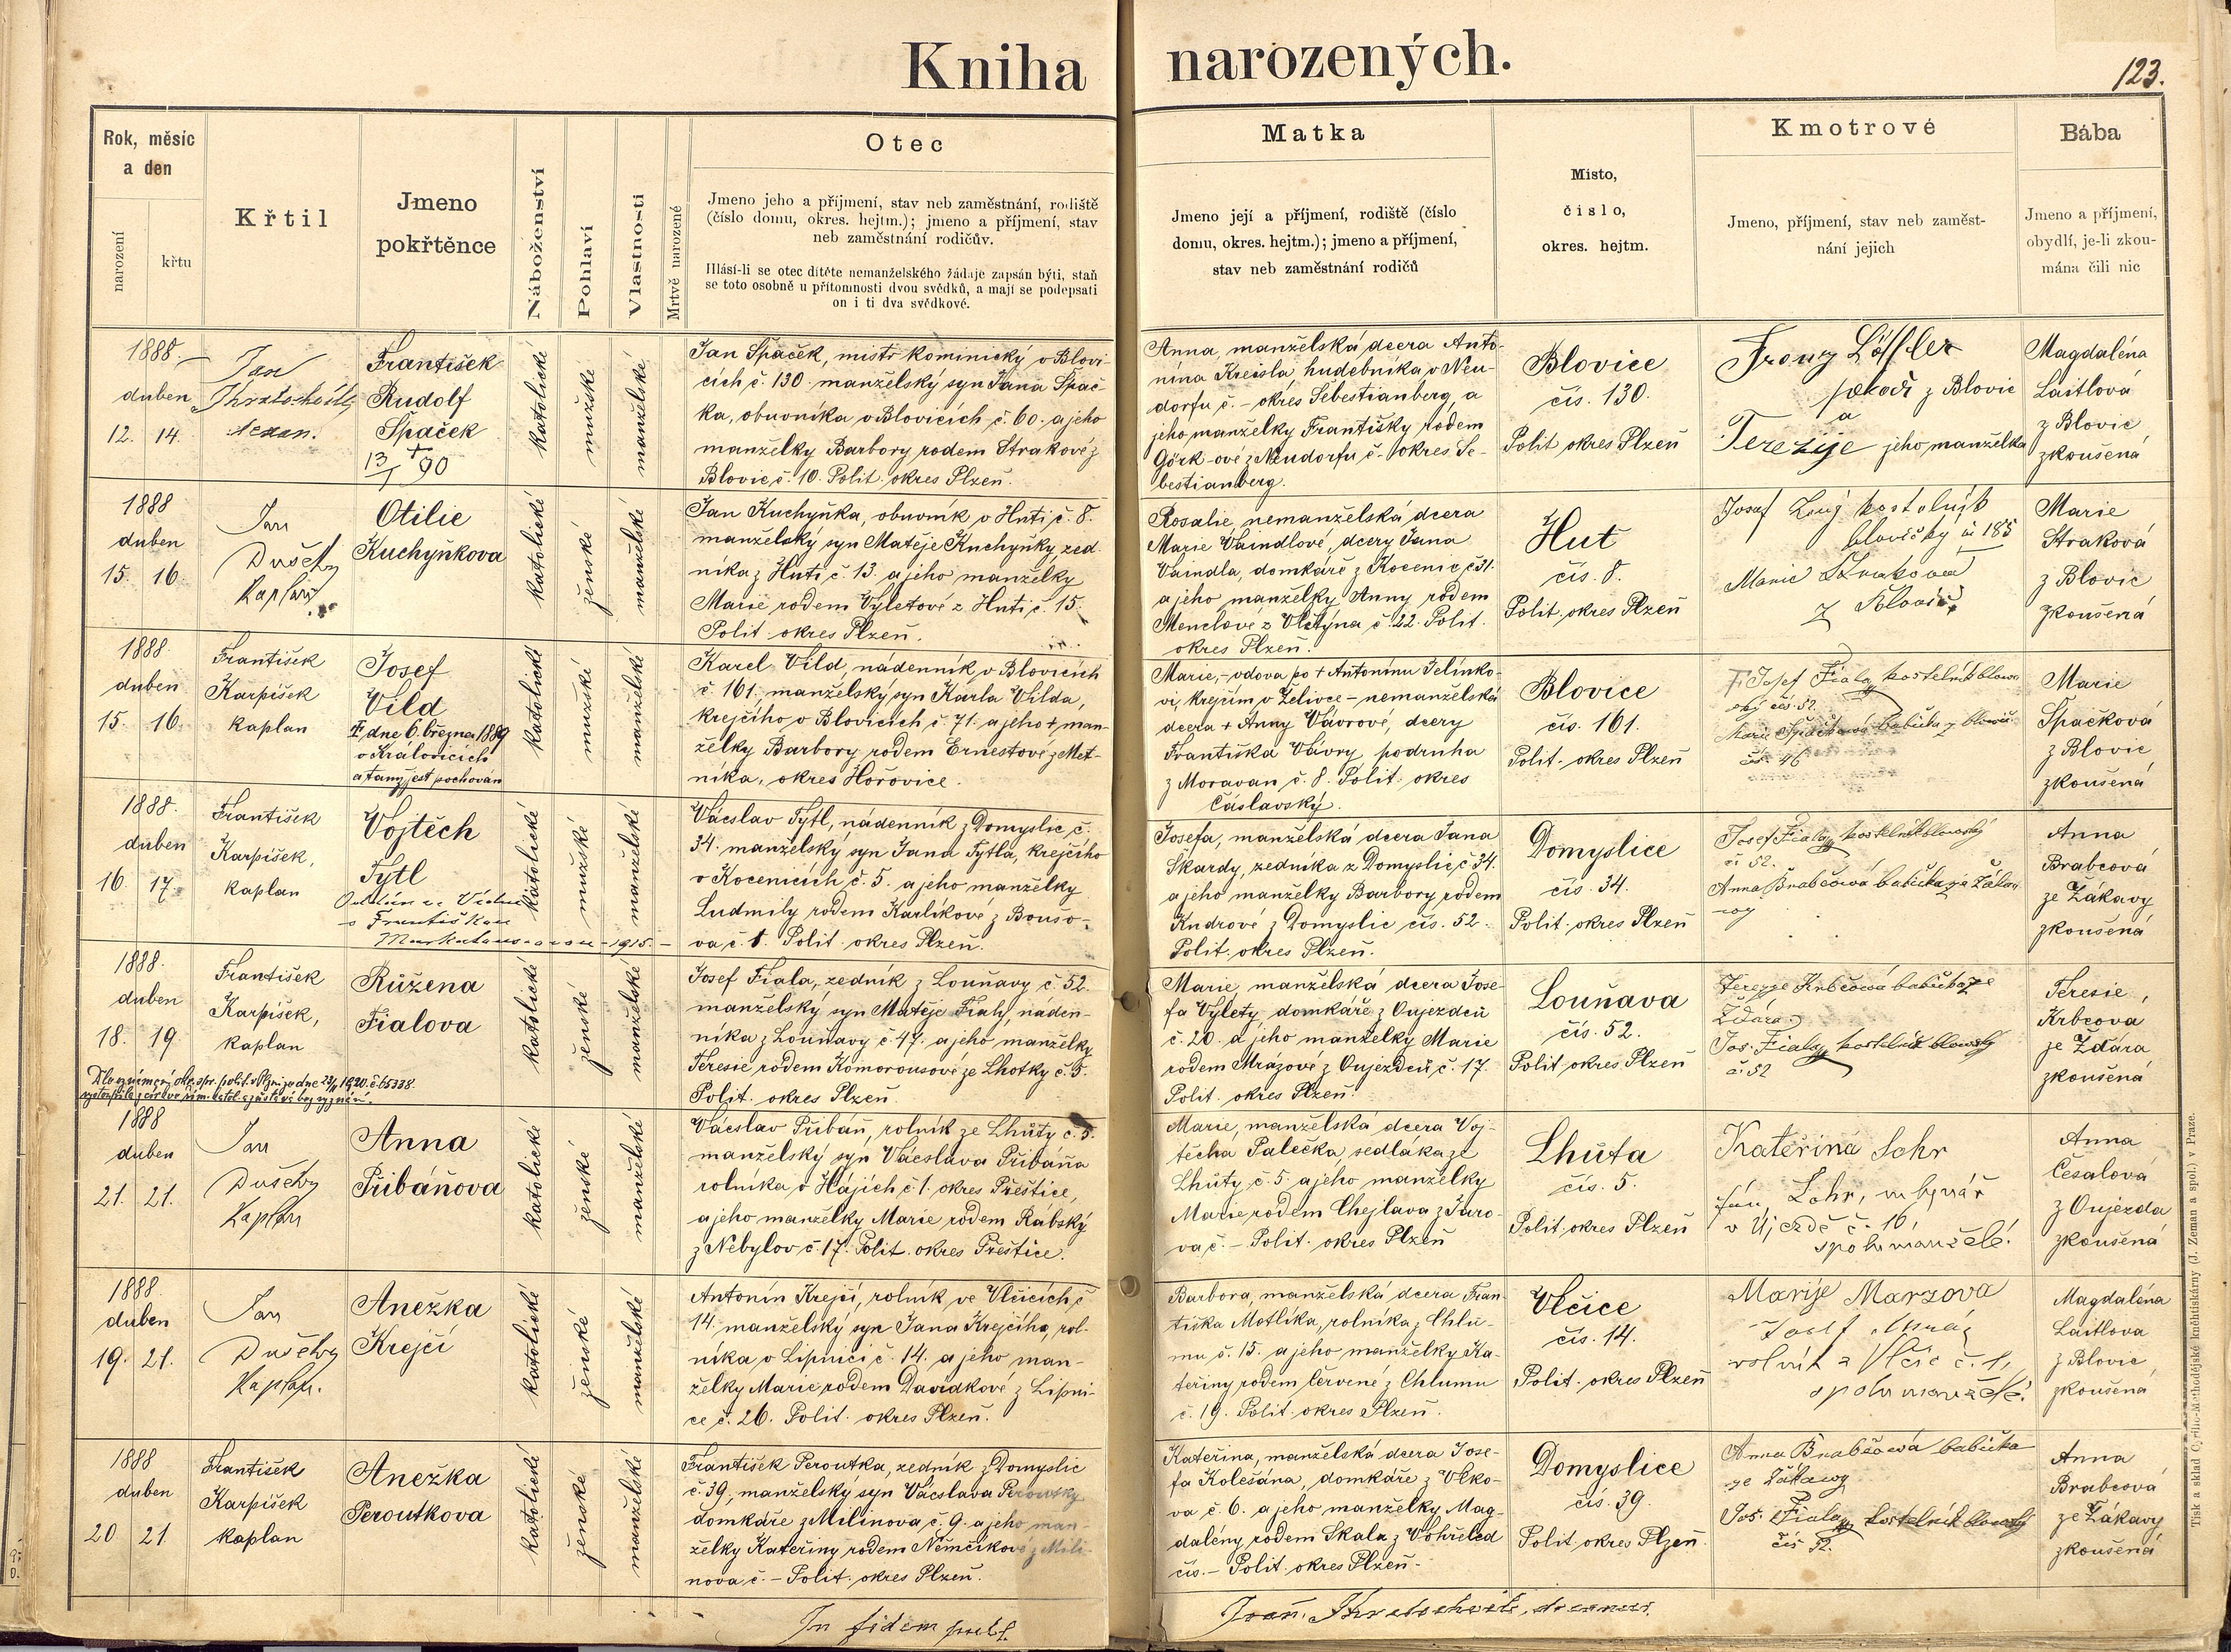 Kniha narozených.
123.
Rok, měsíc
a den
narození
křtu
Křtil
Jmeno
pokřtěnce
Náboženství
Pohlaví
Vlastnosti
Mrtvě narozené
Otec
Jmeno jeho a příjmení, stav neb zaměstnání, rodiště
(číslo domu, okres. hejtm.); jmeno a příjmení, stav
neb zaměstnání rodičův.
Hlásí-li se otec dítěte nemanželského žádaje zapsán býti, staň
se toto osobně u přítomnosti dvou svědků, a mají se podepsati
on i ti dva svědkové.
Matka
Jmeno její a příjmení, rodiště (číslo
domu, okres. hejtm.); jmeno a příjmení,
stav neb zaměstnání rodičů
Místo,
číslo,
okres. hejtm.
Kmotrové
Jmeno, příjmení, stav neb zaměst-
nání jejich
Bába
Jmeno a příjmení,
obydlí, je-li zkou-
mána čili nic
1888.
duben
12. 14.
Jan
František
Rudolf
Špaček
13/I 90
katolické
mužské
manželské
Jan Špaček, mistr kominický v Blovi-
cích č. 130. manželský syn Jana Špač-
ka, obuvníka v Blovicích č. 60. a jeho
manželky Barbory rodem Strakové z
Blovic č. 10. Polit. okres Plzeň.
Anna, manželská dcera Anto-
nína Kreisla, hudebníka v Neu-
dorfu č. - okrés Sebestianberg, a
jeho manželky Františky rodem
Görk-ové z Neudorfu č. - okres Se-
bestianberg.
Blovice
čís. 130.
Polit okres Plzeň
Franz Löffler
z Blovic
a
Terezije jeho manželka
Magdaléna
Laitlová
z Blovic
zkoušená
1888
duben
15. 16.
Jan
Dušek
Kaplan
Otilie
Kuchyňkova
katolické
ženské
manželské
Jan Kuchyňka, obuvník v Huti č. 8.
manželský syn Matěje Kuchyňky, zed-
níka z Huti č. 13. a jeho manželky
Marie rodem Výletové z Huti č. 15.
Polit. okres Plzeň.
Rosalie, nemanželská dcera
Marie Vaindlové, dcery Jana
Vaindla, domkáře z Kocenic č 31.
a jeho manželky Anny rodem
Menclové z Vlčtýna č. 22. Polit.
okres Plzeň.
Hut
čís. 8.
Polit. okres Plzeň
Josef kostelník
blovický čí 185
Marie Straková
z Blovic
Marie
Straková
z Blovic
zkoušená
1888.
duben
15. 16.
František
Karpíšek
kaplan
Josef
Vild
† dne 6. března 1889
v Královicích
a tamž jest pochován
katolické
mužské
manželské
Karel Vild, nádenník v Blovicích
č. 161., manželský syn Karla Vilda,
krejčího v Blovicích č. 71. a jeho † man-
želky Barbory rodem Ernestové z Mět-
níka, okres Hořovice.
Marie, - vdova po † Antonínu Jelínko-
vi, krejčím v Želivce - nemanželská
dcera † Anny Vávrové, dcery
Františka Vávry, podruha
z Moravan č. 8. Polit. okres
Čáslavský.
Blovice
čís. 161.
Polit. okres Plzeň
Josef Fiala, kostelník blovi-
cký čís. 52.
Marie Špačková babička z Blovic
čís. 46
Marie
Špačková
z Blovic
zkoušená
1888.
duben
16. 17.
František
Karpíšek,
kaplan
Vojtěch
Tytl
1915.
katolické
mužské
manželské
Václav Tytl, nádenník z Domyslic č.
34. manželský syn Jana Tytla, krejčího
v Kocenicích č. 5. a jeho manželky
Ludmily rodem Karlíkové z Boušo-
va č. 1. Polit. okres Plzeň.
Josefa, manželská dcera Jana
Škardy, zedníka z Domyslic, č 34.
a jeho manželky Barbory rodem
Kudrové z Domyslic čís. 52.
Polit. okres Plzeň.
Domyslice
čís. 34.
Polit. okres Plzeň
Josef Fiala, kostelník blovický
čí 52.
Anna Brabcová babička ze Žáka-
wy
Anna
Brabcová
ze Žákavy
zkoušená
1888.
duben
18. 19.
František
Karpíšek,
kaplan
Růžena
Fialova
katolické
ženské
manželské
Josef Fiala, zedník z Louňavy č. 52.
manželský syn Matěje Fialy, náden-
níka z Louňavy č. 47. a jeho manželky
Teresie rodem Komorousové ze Lhotky č. 5.
Polit. okres Plzeň.
Marie, manželská dcera Jose-
fa Výlety, domkáře z Oujezdců
č. 20. a jeho manželky Marie
rodem Mrázové z Oujezdců č. 17.
Polit. okres Plzeň.
Louňava
čís. 52.
Polit okres Plzeň
Terezye Krbcová babička ze
Ždára
Jos. Fiala, kostelník blovický
čí 52
Teresie
Krbcova
ze Ždára
zkoušená
1888
duben
21. 21.
Jan
Dušek
Kaplan
Anna
Přibáňova
katolické
ženské
manželské
Václav Přibáň, rolník ze Lhůty č. 5.
manželský syn Václava Přibáňa
rolníka v Hájích č. 1. okres Přeštice,
a jeho manželky Marie rodem Rabský
z Nebylov č. 17. Polit. okres Přeštice.
Marie, manželská dcera Voj-
těcha Palečka, sedláka ze
Lhůty č. 5. a jeho manželky
Marie rodem Chejlava z Žuro-
va č. - Polit. okres Plzeň
Lhůta
čís. 5.
Polit. okres Plzeň
Kateřina Lohr
Jan Lohr,
v Újezdě č. 16,
spolu manželé.
Anna
Česalová
z Oujezda
zkoušená
1888.
duben
19. 21.
Jan
Dušek
Kaplan.
Anežka
Krejčí
katolické
ženské
manželské
Antonín Krejčí, rolník ve Vlčicích č
14. manželský syn Jana Krejčího, rol-
níka v Lipnici č. 14. a jeho man-
želky Marie rodem Davidkové z Lipni-
ce č. 26. Polit. okres Plzeň.
Barbora, manželská dcera Fran-
tiška Motlíka, rolníka z Chlu-
mu č. 15. a jeho manželky Ka-
teřiny rodem Červené z Chlumu
č. 19. Polit. okres Plzeň.
Vlčice
čís. 14.
Polit. okres Plzeň
Marije
Josef
rolník z Vlčic č. 1,
spolu manželé.
Magdaléna
Laitlova
z Blovic
zkoušená
1888
duben
20 21.
František
Karpíšek
kaplan
Anežka
Peroutkova
katolické
ženské
manželské
František Peroutka, zedník z Domyslic
č. 39., manželský syn Václava Peroutky
domkáře z Milinova č. 9. a jeho man-
želky Kateřiny rodem Němčíkové z Mili-
nova č. - Polit. okres Plzeň.
Kateřina, manželská dcera Jose-
fa Kolesána, domkáře z Vlko-
va č. 6. a jeho manželky Mag-
dalény rodem Skala z Vohřeled
čís. - Polit. okres Plzeň.
Domyslice
čís. 39.
Polit. okres Plzeň.
Anna Brabcová babička
ze Žákawy
Jos. Fiala, kostelník blovický
čís 52.
Anna
Brabcová
ze Žákavy
zkoušená
In fidem publ.
Tisk a sklad Cyrillo-Methodějské knihtiskárny (J. Zeman a spol.) v Praze.